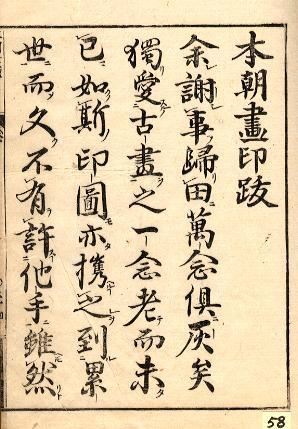 本朝畫印跋
余謝事歸田萬念俱灰矣
獨愛古畫之一念老而未
已如斯印圖亦携之到累
世而久不有許他手雖然
58